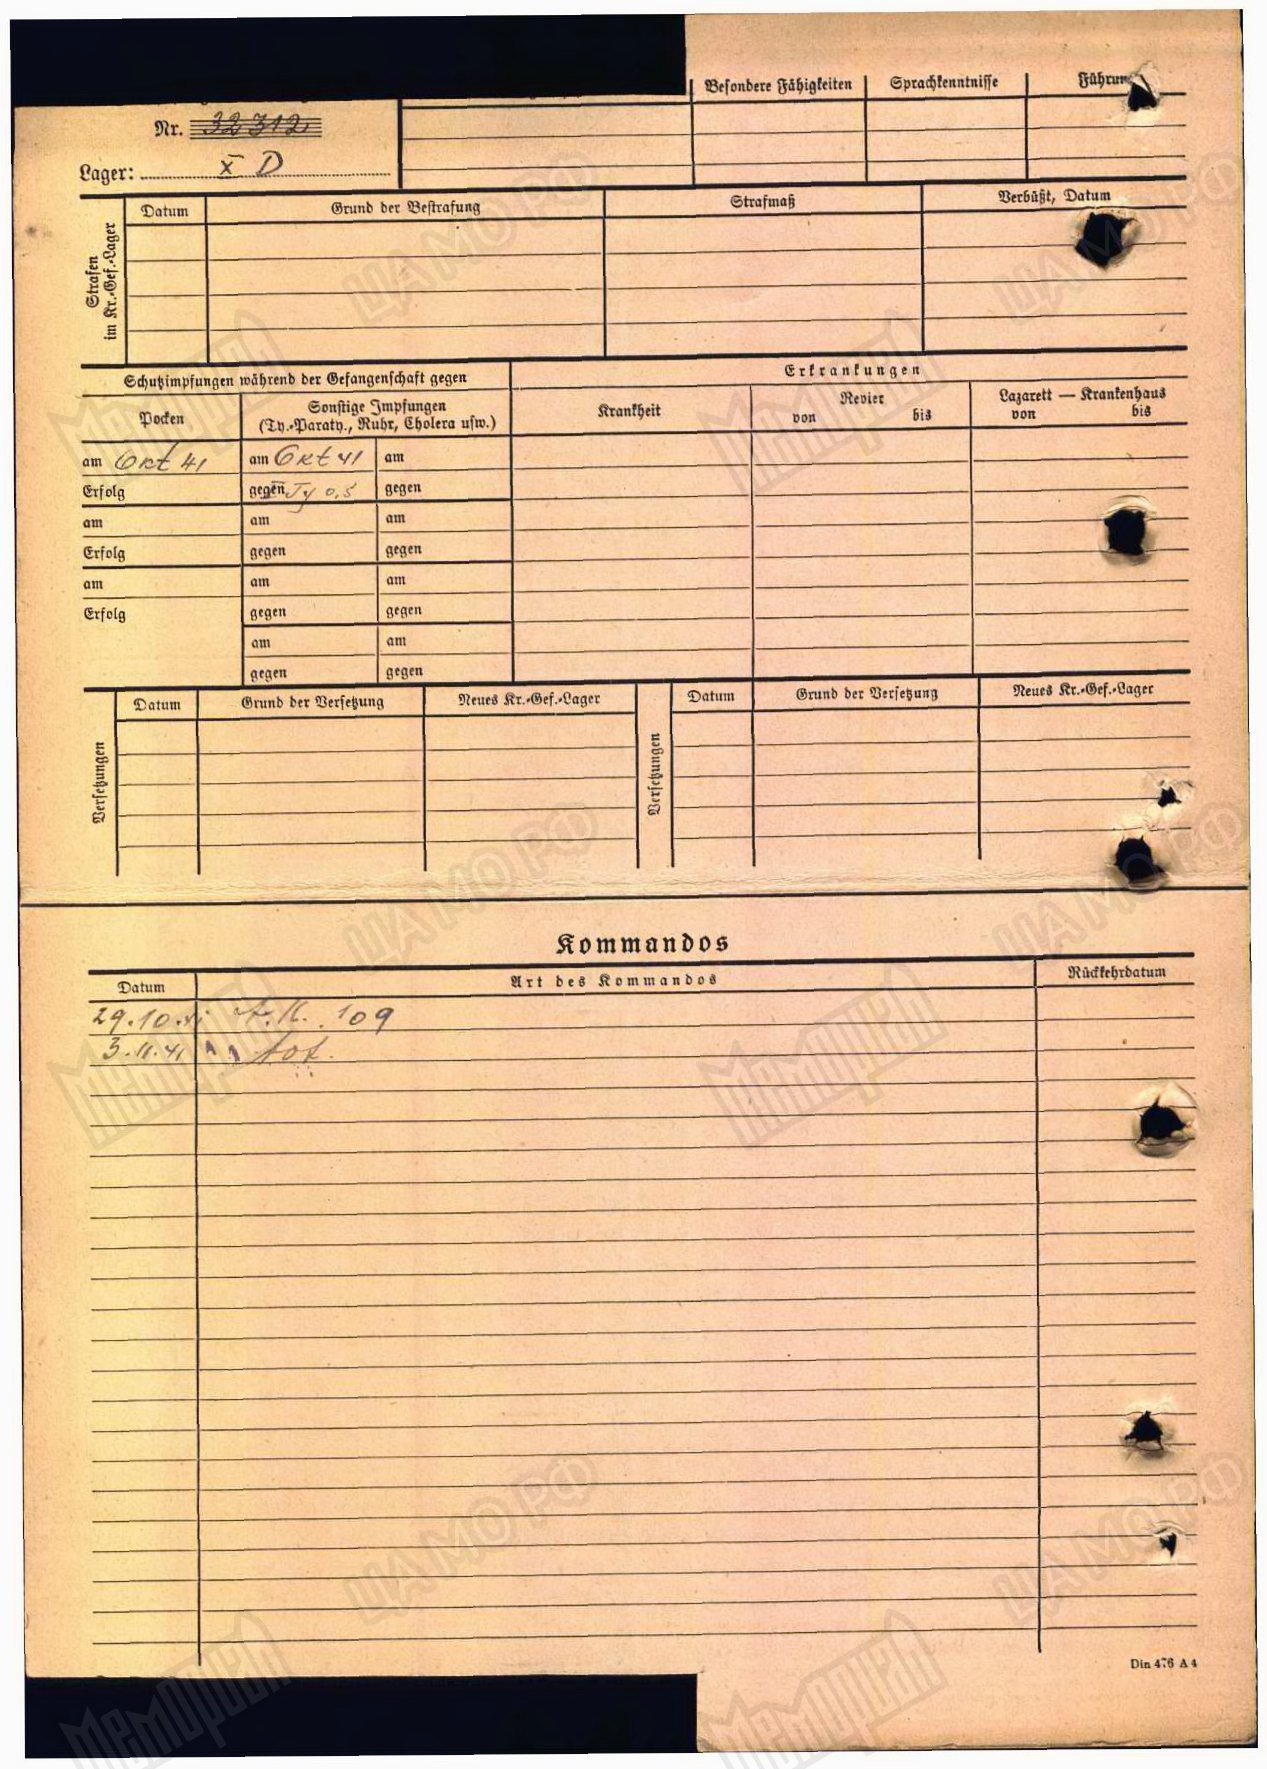 Besondere Fähigkeiten Sprachkenntnisse Führung
Nr. 32312
Lager: X D
Strafen im Kr.-Gef.-Lager
Datum Grund der Bestrafung Strafmaß Verbüßt, Datum
Schutzimpfungen während der Gefangenschaft gegen Erkrankungen
Pocken Sonstige Impfungen (Ty.-Paraty., Ruhr, Cholera usw.) Krankheit Revier Lazarett — Krankenhaus
von bis von bis
am Okt 41 am Okt 41 am
Erfolg gegen Ty 0,5 gegen
am am am
Erfolg gegen gegen
am am am
Erfolg gegen gegen
am am
gegen gegen
Versetzungen Datum Grund der Versetzung Neues Kr.-Gef.-Lager Versetzungen Datum Grund der Versetzung Neues Kr.-Gef.-Lager
Kommandos
Datum Art des Kommandos Rückkehrdatum
29.10.41 A.K. 109
3.11.41 " "
Din 476 A 4
ЦАМО РФ
Мемориал